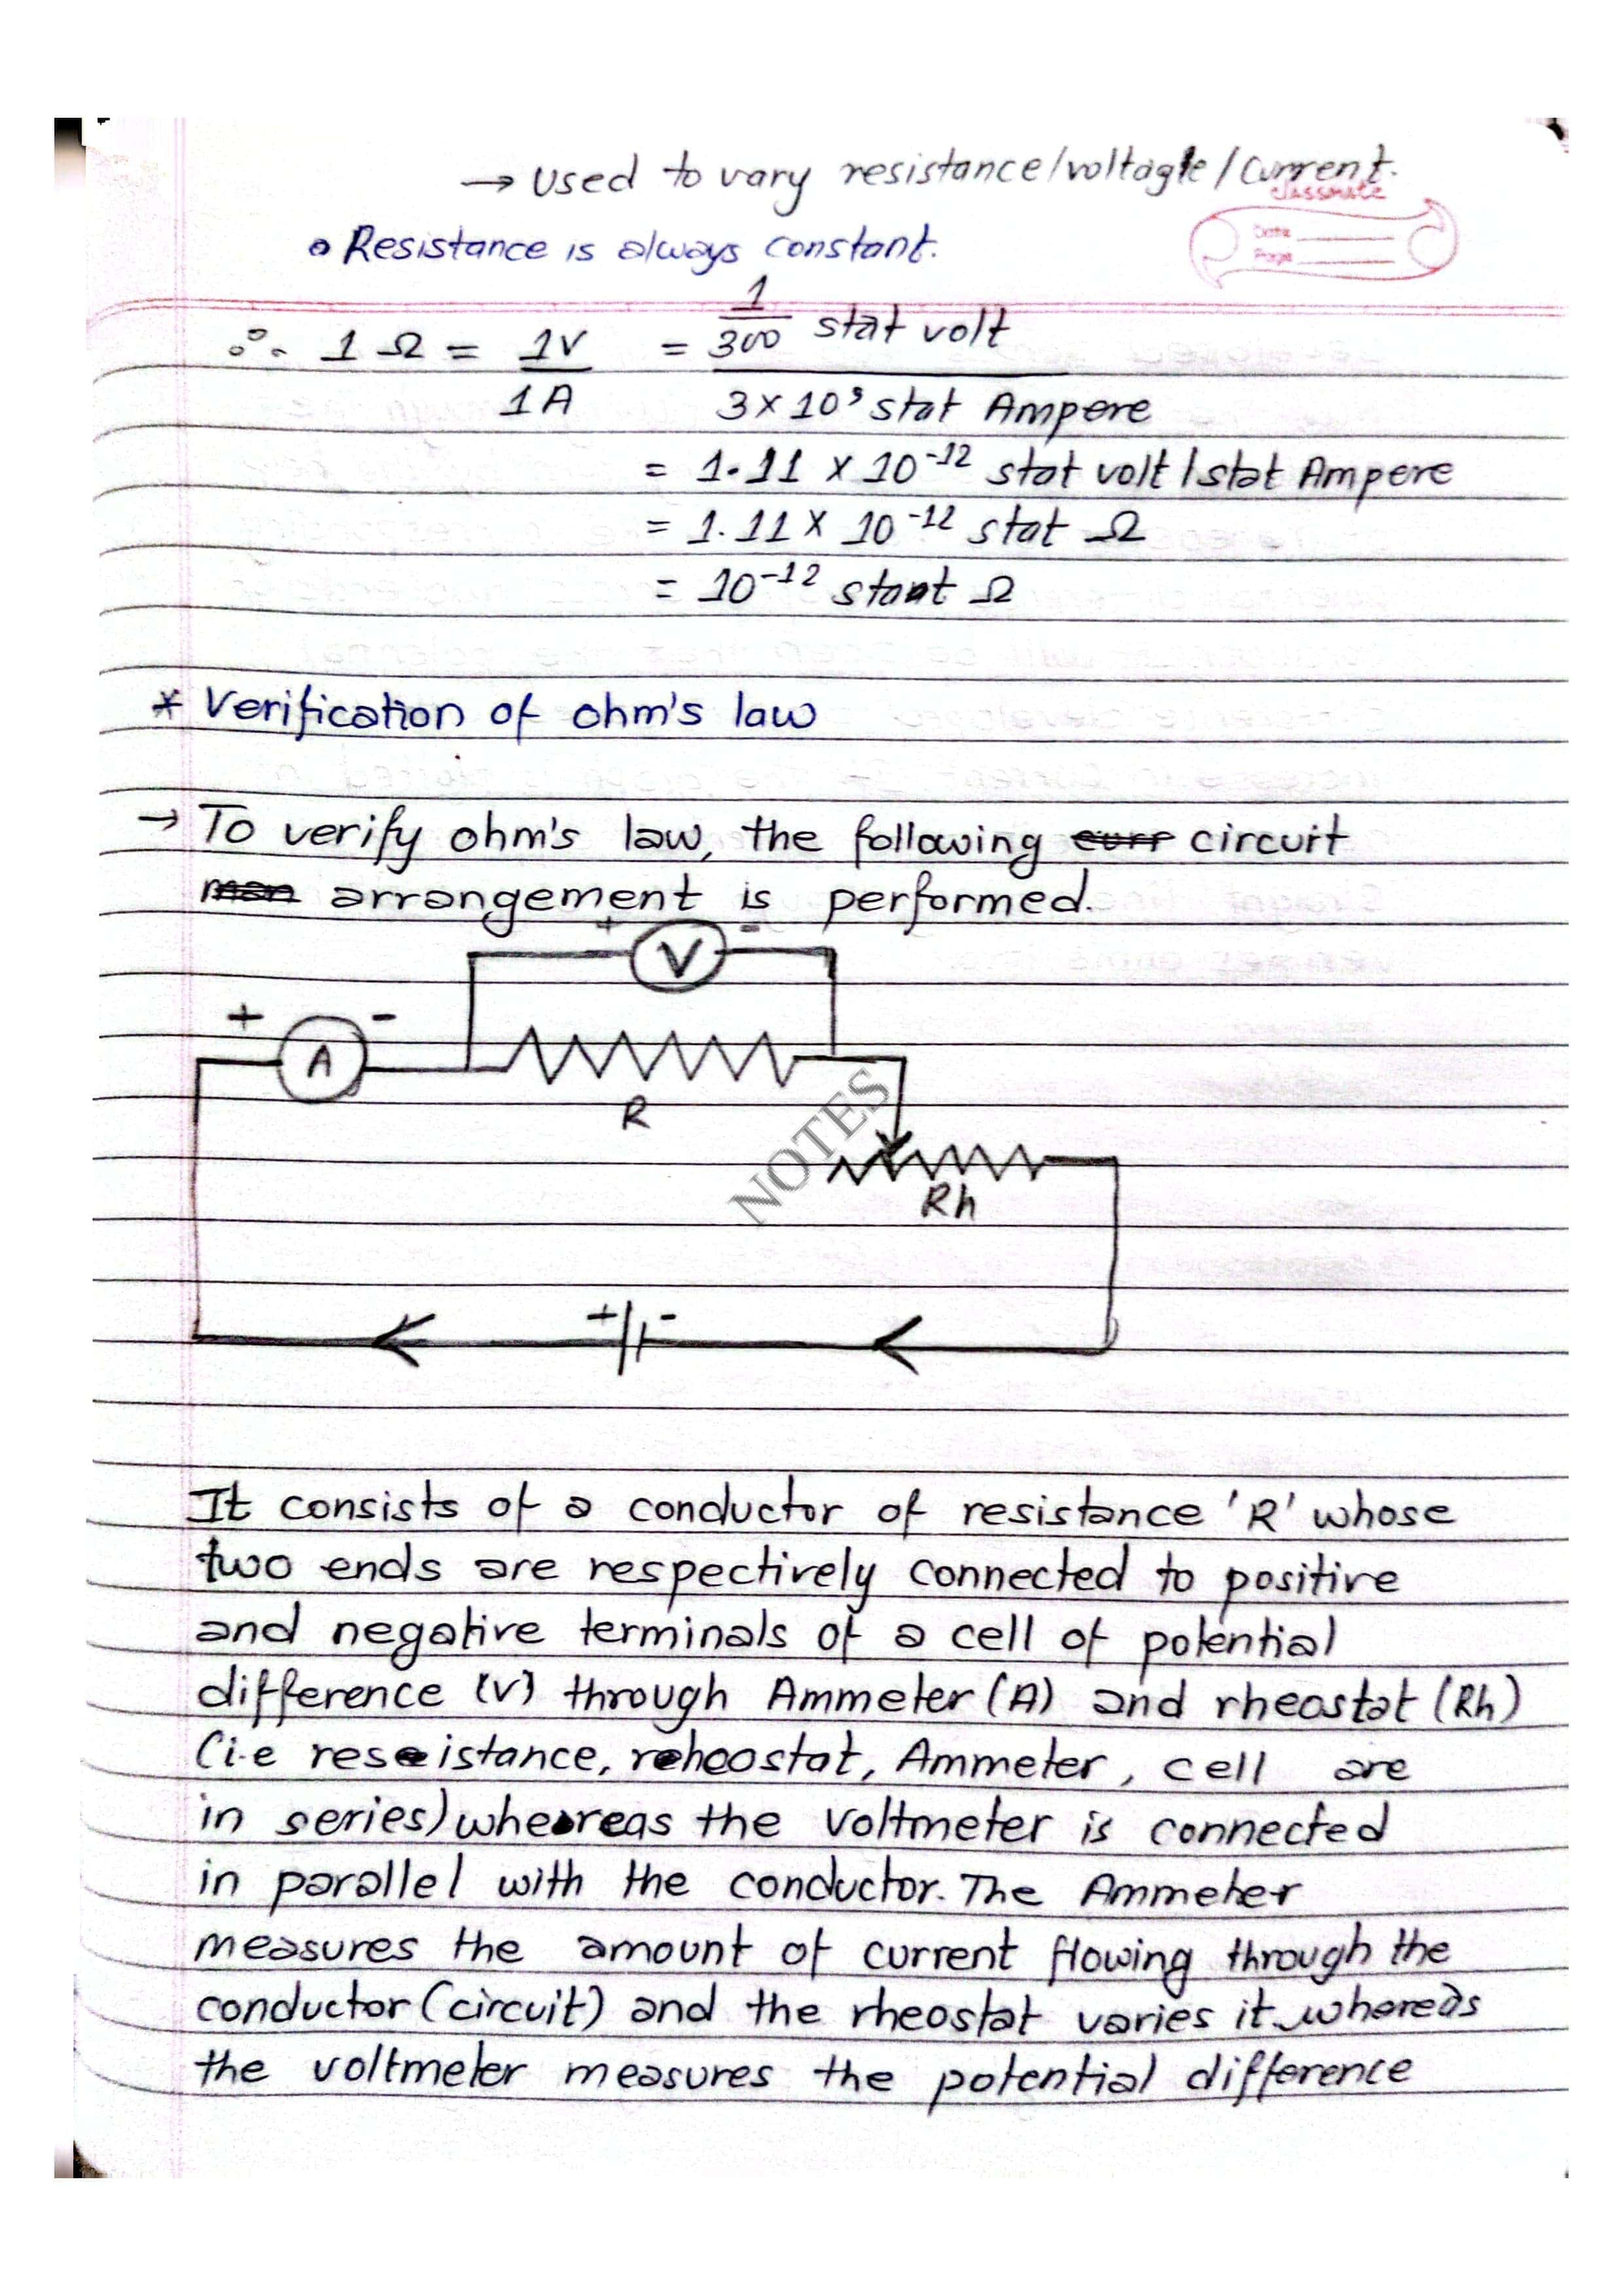 → Used to vary resistance/voltagle/Current.
classmate
Date
Page
• Resistance is always constant.
∴ 1 Ω = 1V / 1A = 1/300 stat volt / 3 x 10⁹ stat Ampere
= 1.11 x 10⁻¹² stat volt / stat Ampere
= 1.11 x 10⁻¹² stat Ω
= 10⁻¹² stat Ω
* Verification of ohm's law
→ To verify ohm's law, the following circuit
arrangement is performed.
+ V -
+ A -
R
NOTES
Rh
+ -
It consists of a conductor of resistance 'R' whose
two ends are respectively connected to positive
and negative terminals of a cell of potential
difference (V) through Ammeter (A) and rheostat (Rh)
(i.e resistance, rheostat, Ammeter, cell are
in series) whereas the voltmeter is connected
in parallel with the conductor. The Ammeter
measures the amount of current flowing through the
conductor (circuit) and the rheostat varies it whereas
the voltmeter measures the potential difference